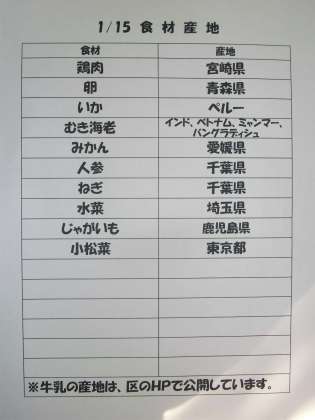 1/15 食材産地
食材 産地
鶏肉 宮崎県
卵 青森県
いか ペルー
むき海老 インド、ベトナム、ミャンマー、バングラディシュ
みかん 愛媛県
人参 千葉県
ねぎ 千葉県
水菜 埼玉県
じゃがいも 鹿児島県
小松菜 東京都
※牛乳の産地は、区のHPで公開しています。